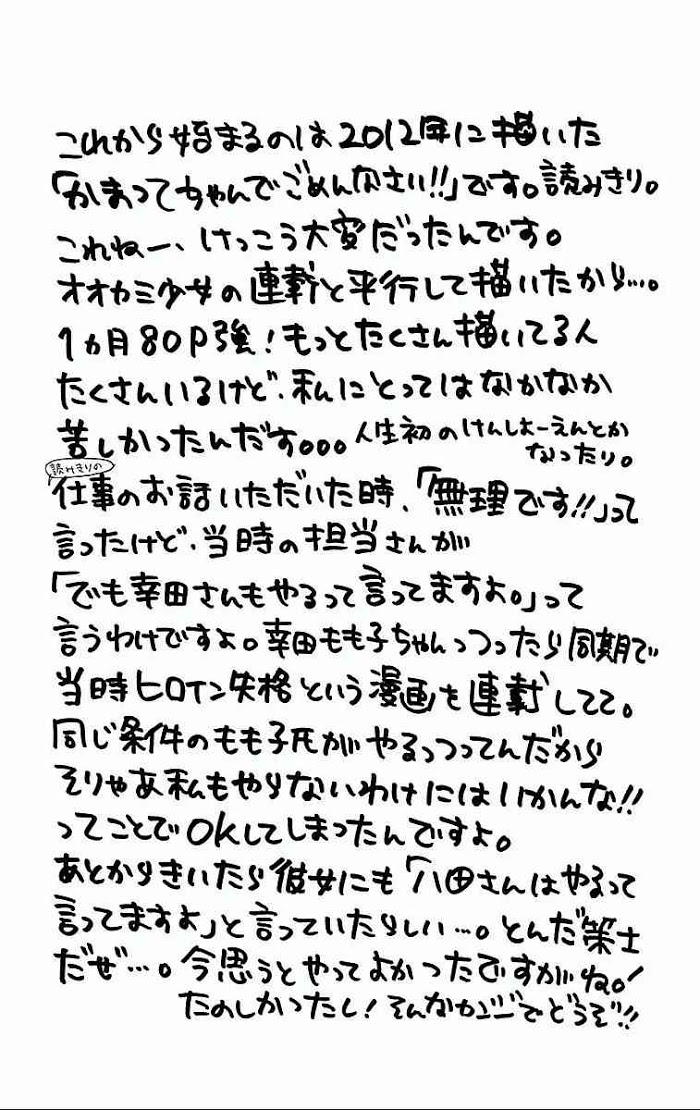 これから始まるのは2012年に描いた
「かまってちゃんでごめんなさい!!」です。読みきり。
これねー、けっこう大変だったんです。
オオカミ少女の連載と平行して描いたから…。
1ヵ月80P強!もっとたくさん描いてる人
たくさんいるけど、私にとってはなかなか
苦しかったんだす。。。人生初のけんしょーえんとか
なったり。
読みきりの
仕事のお話いただいた時、「無理です!!」って
言ったけど、当時の担当さんが
「でも幸田さんもやるって言ってますよ。」って
言うわけですよ。幸田もも子ちゃんっつったら同期で
当時ヒロイン失格という漫画を連載してて。
同じ条件のもも子氏がやるっつってんだから
そりゃあ私もやらないわけにはいかんな!!
ってことでOKしてしまったんですよ。
あとからきいたら彼女にも「八田さんはやるって
言ってますよ」と言っていたらしい…。とんだ策士
だぜ…。今思うとやってよかったですがね。!
たのしかったし!そんなカンジでどうぞ!!